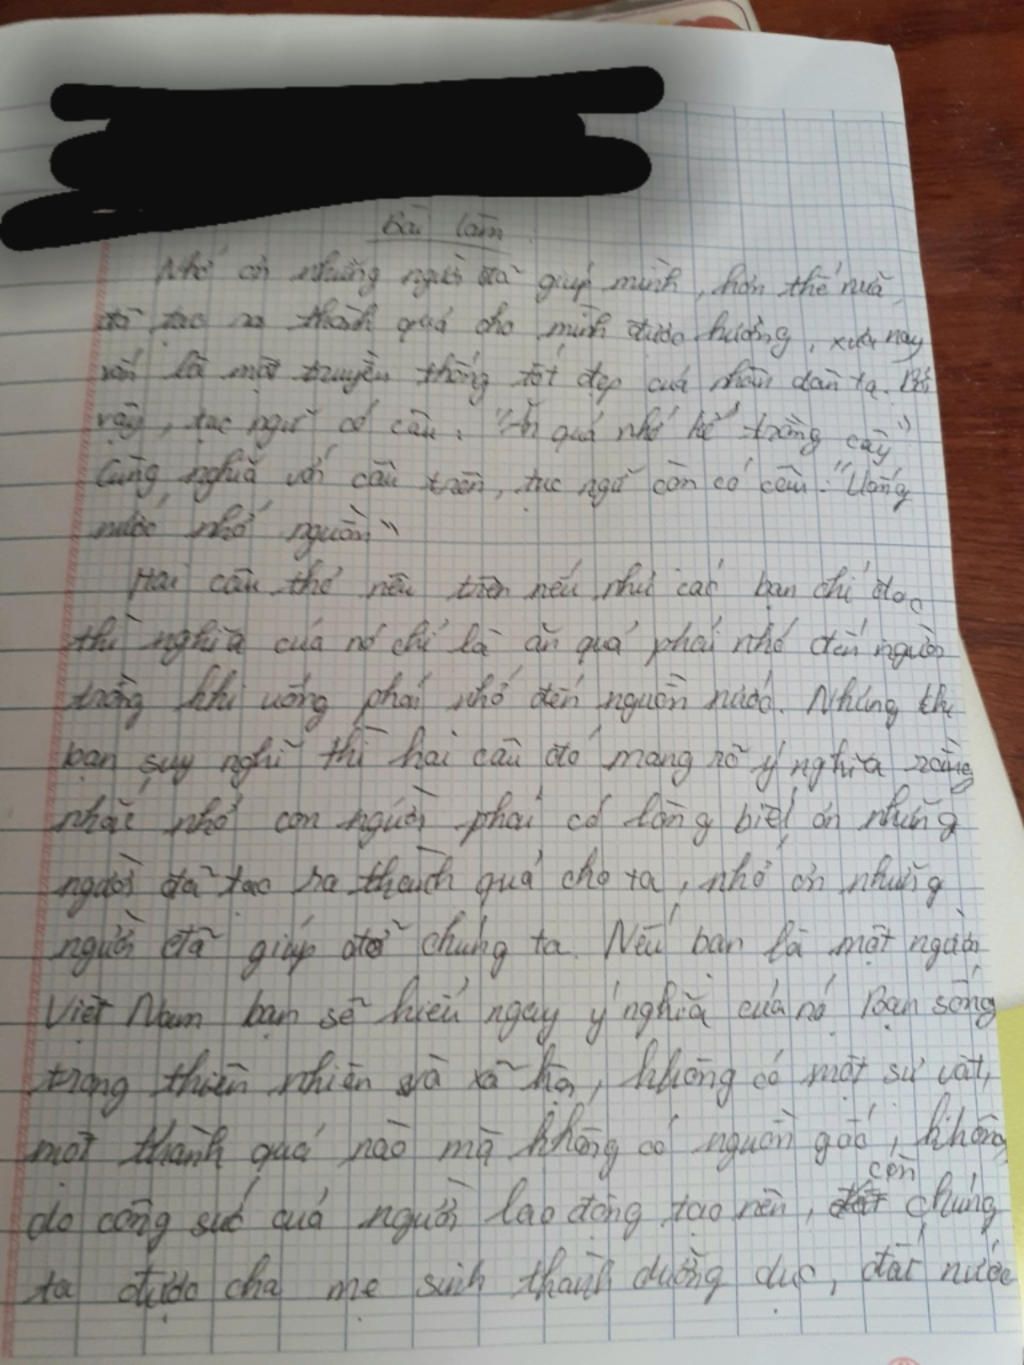 Bài làm
Nhớ ơn những người đã giúp mình, hơn thế nữa
đã tạo ra thành quả cho mình được hưởng, xưa nay
vốn là một truyền thống tốt đẹp của nhân dân ta. Bởi
vậy, tục ngữ có câu: "Ăn quả nhớ kẻ trồng cây"
Cùng nghĩa với câu trên, tục ngữ còn có câu: "Uống
nước nhớ nguồn"
Hai câu thơ nêu trên nếu như các bạn chỉ đọc
thì nghĩa của nó chỉ là ăn quả phải nhớ đến người
trồng khi uống phải nhớ đến nguồn nước. Nhưng khi
bạn suy nghĩ thì hai câu đó mang rõ ý nghĩa rằng
nhắc nhở con người phải có lòng biết ơn những
người đã tạo ra thành quả cho ta, nhớ ơn những
người đã giúp đỡ chúng ta. Nếu bạn là một người
Việt Nam bạn sẽ hiểu ngay ý nghĩa của nó Bạn sống
trong thiên nhiên và xã hội, không có một sự vật,
một thành quả nào mà không có nguồn gốc, không
do công sức của người lao động tạo nên, còn chúng
ta được cha mẹ sinh thành dưỡng dục, đất nước